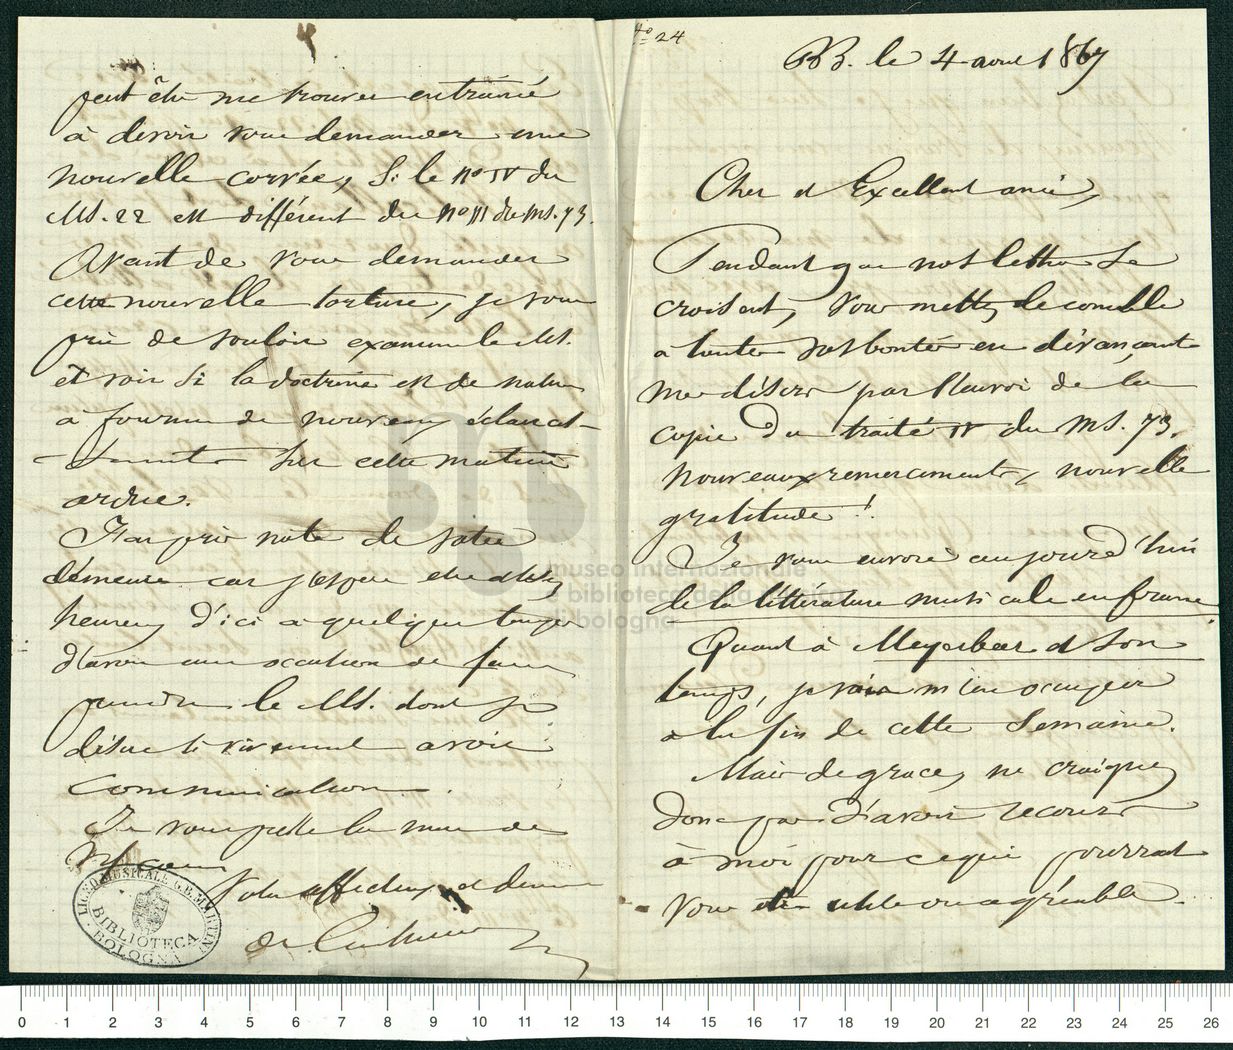 N° 24
BB. le 4 avril 1867
Cher et Excellent ami,
Pendant que nos lettres se
croisent, vous mettez le comble
à toutes vos bontés en
me par l'envoi de la
copie du traité IV du ms. 73.
Nouveaux remerciments, nouvelle
gratitude!
Je vous envoie aujourd'hui
de la littérature musicale en france.
Quant à Meyerbeer et son
temps, je vais m'en occuper
à la fin de cette semaine.
Mais de grace, ne craignez
donc pas d'avoir recours
à moi pour ce qui pourrait
vous être utile ou agréable.
peut être me trouver entrainé
à devoir vous demander une
nouvelle corvée, si le n° IV du
Ms. 22 est différent du n° III du ms. 73.
Avant de vous demander
cette nouvelle torture, je vous
prie de vouloir examiner le Ms.
et voir si la doctrine est de nature
à fournir de nouveaux éclaircis-
sements sur cette matière
ardue.
J'ai pris note de votre
demeure car j'espère être assez
heureux d'ici à quelque temps
d'avoir une occasion de faire
prendre le Ms. dont je
désire si vivement avoir
communication.
Je vous presse la main de
tout coeur
Votre affectueux et dévoué
de Coussemaker
LICEO MUSICALE G.B. MARTINI
BIBLIOTECA
BOLOGNA
museo internazionale
e biblioteca della musica
di bologna
0 1 2 3 4 5 6 7 8 9 10 11 12 13 14 15 16 17 18 19 20 21 22 23 24 25 26